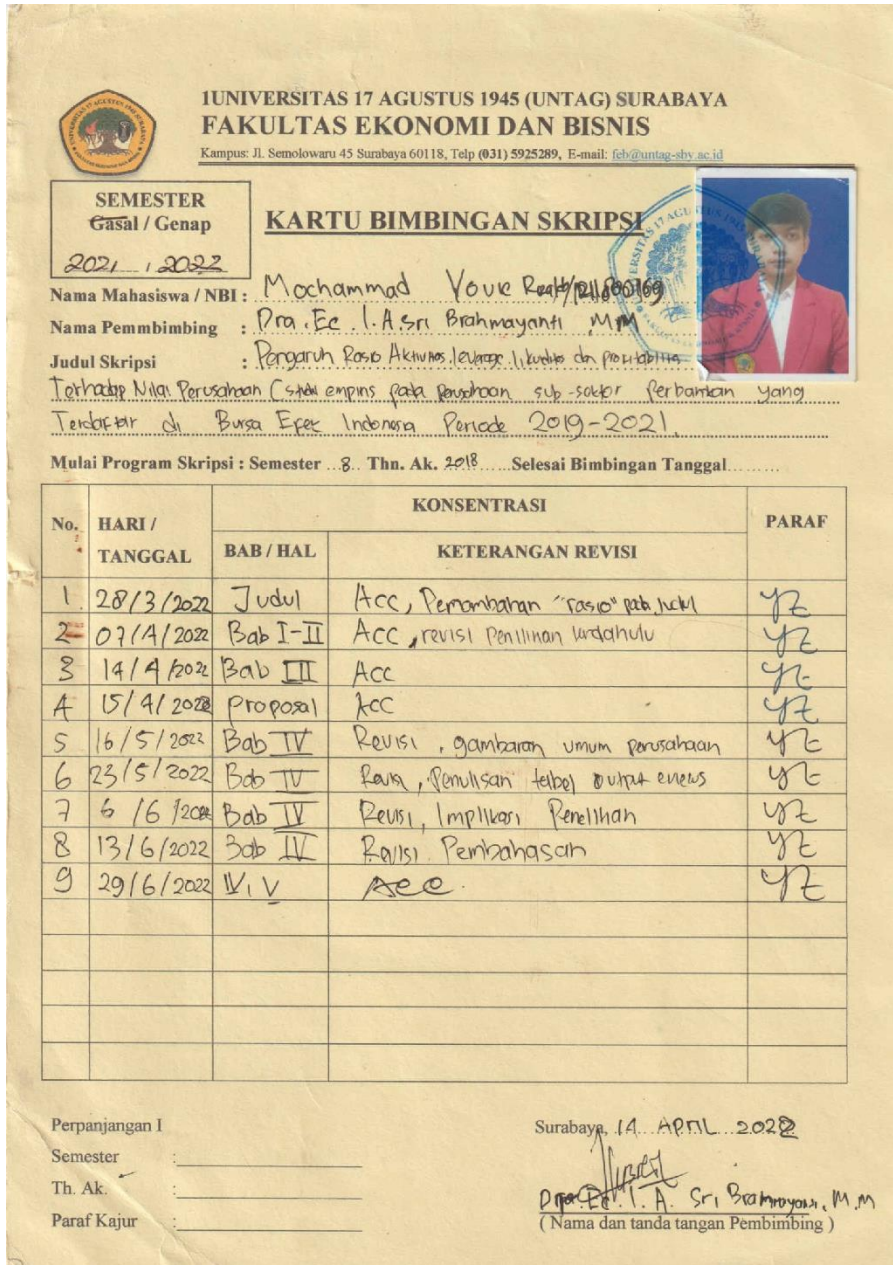 1UNIVERSITAS 17 AGUSTUS 1945 (UNTAG) SURABAYA
FAKULTAS EKONOMI DAN BISNIS
Kampus: Jl. Semolowaru 45 Surabaya 60118, Telp (031) 5925289, E-mail: feb@untag-sby.ac.id
SEMESTER
Gasal / Genap
2021 / 2022
KARTU BIMBINGAN SKRIPSI
Nama Mahasiswa / NBI : Mochammad
Nama Pemmbimbing : Dra. Ec. I. A. Sri Brahmayanti M.M
Judul Skripsi : Pengaruh Rasio Aktivitas, leverage, likuditas dan profitabilitas
Terhadap Nilai Perusahaan (studi empiris pada perusahaan sub-sektor Perbankan yang
Terdaftar di Bursa Efek Indonesia Periode 2019-2021
Mulai Program Skripsi : Semester ...8.. Thn. Ak. 2018......Selesai Bimbingan Tanggal.........
No. HARI / TANGGAL KONSENTRASI PARAF
BAB / HAL KETERANGAN REVISI
1 28/3/2022 Judul Acc, Penambahan "rasio" pada judul
2 07/4/2022 Bab I-II Acc, revisi Penelitian terdahulu
3 14/4/2022 Bab III Acc
4 15/4/2022 Proposal Acc
5 16/5/2022 Bab IV Revisi, gambaran umum perusahaan
6 23/5/2022 Bab IV Revisi, Penulisan tabel output eviews
7 6/6/2022 Bab IV Revisi, Implikasi Penelitian
8 13/6/2022 Bab IV Revisi Pembahasan
9 29/6/2022 IV, V Acc.
Perpanjangan I
Semester :
Th. Ak. :
Paraf Kajur :
Surabaya, 14 APRIL 2022
I. A. Sri Brahmayanti, M.M
( Nama dan tanda tangan Pembimbing )